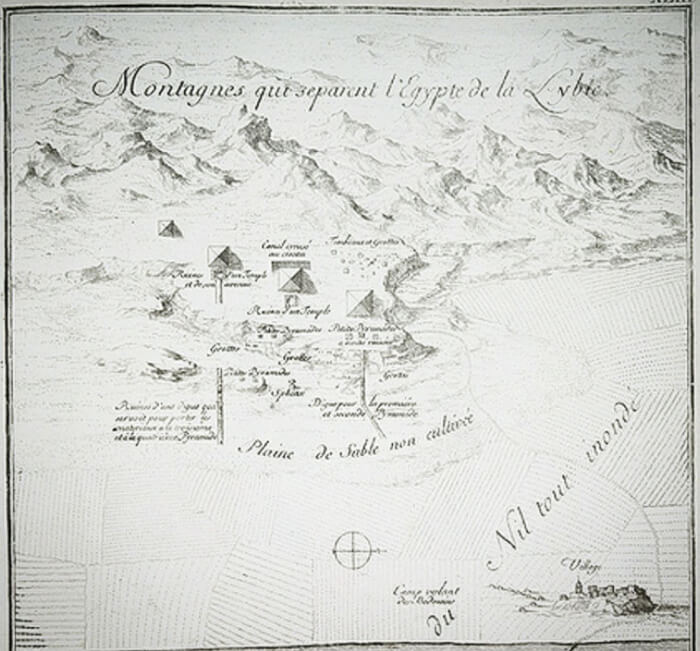 Montagnes qui separent l'Egypte de la Lybie.
Canal creusé
au ciseau
Tombeaux et Grottes
Ruines d'un Temple
et de son
Ruines d'un Temple
Petites Pyramides
Petites Pyramides
Grottes
Grottes
Grottes
Petites Pyramides
Sphinx
Ruines d'une digue qui
servoit pour porter les
materiaux a la troisieme
et à la quatrieme Pyramide
Digue pour la premiere
et seconde Pyramide
Plaine de Sable non cultivée
Nil tout inondé
Village
Camp volant
des Bedouins
du